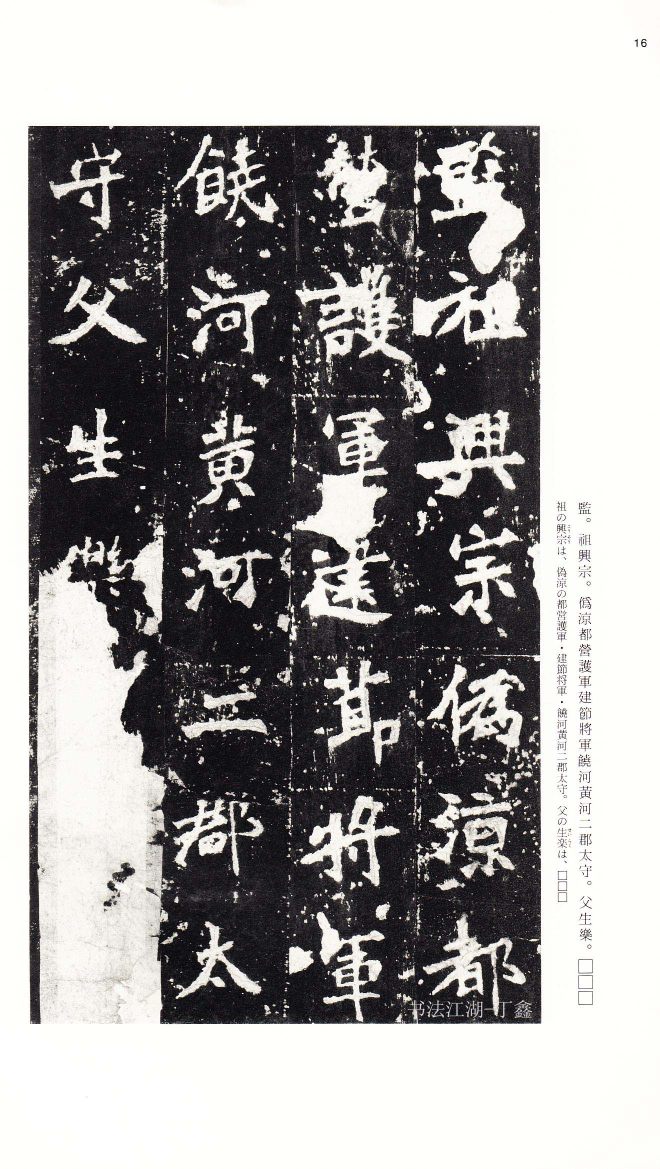 16
監祖興宗偽涼都
營護軍建節將軍
饒河黃河二郡太
守父生樂
監。祖興宗。僞涼都營護軍建節將軍饒河黃河二郡太守。父生樂。□□□
祖の興宗は、偽涼の都営護軍・建節将軍・饒河黄河二郡太守。父の生楽は、□□□
书法江湖-丁鑫